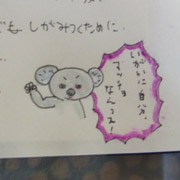 でも しがみつくために
いがいに自分、
マッチョ
なんスよ!